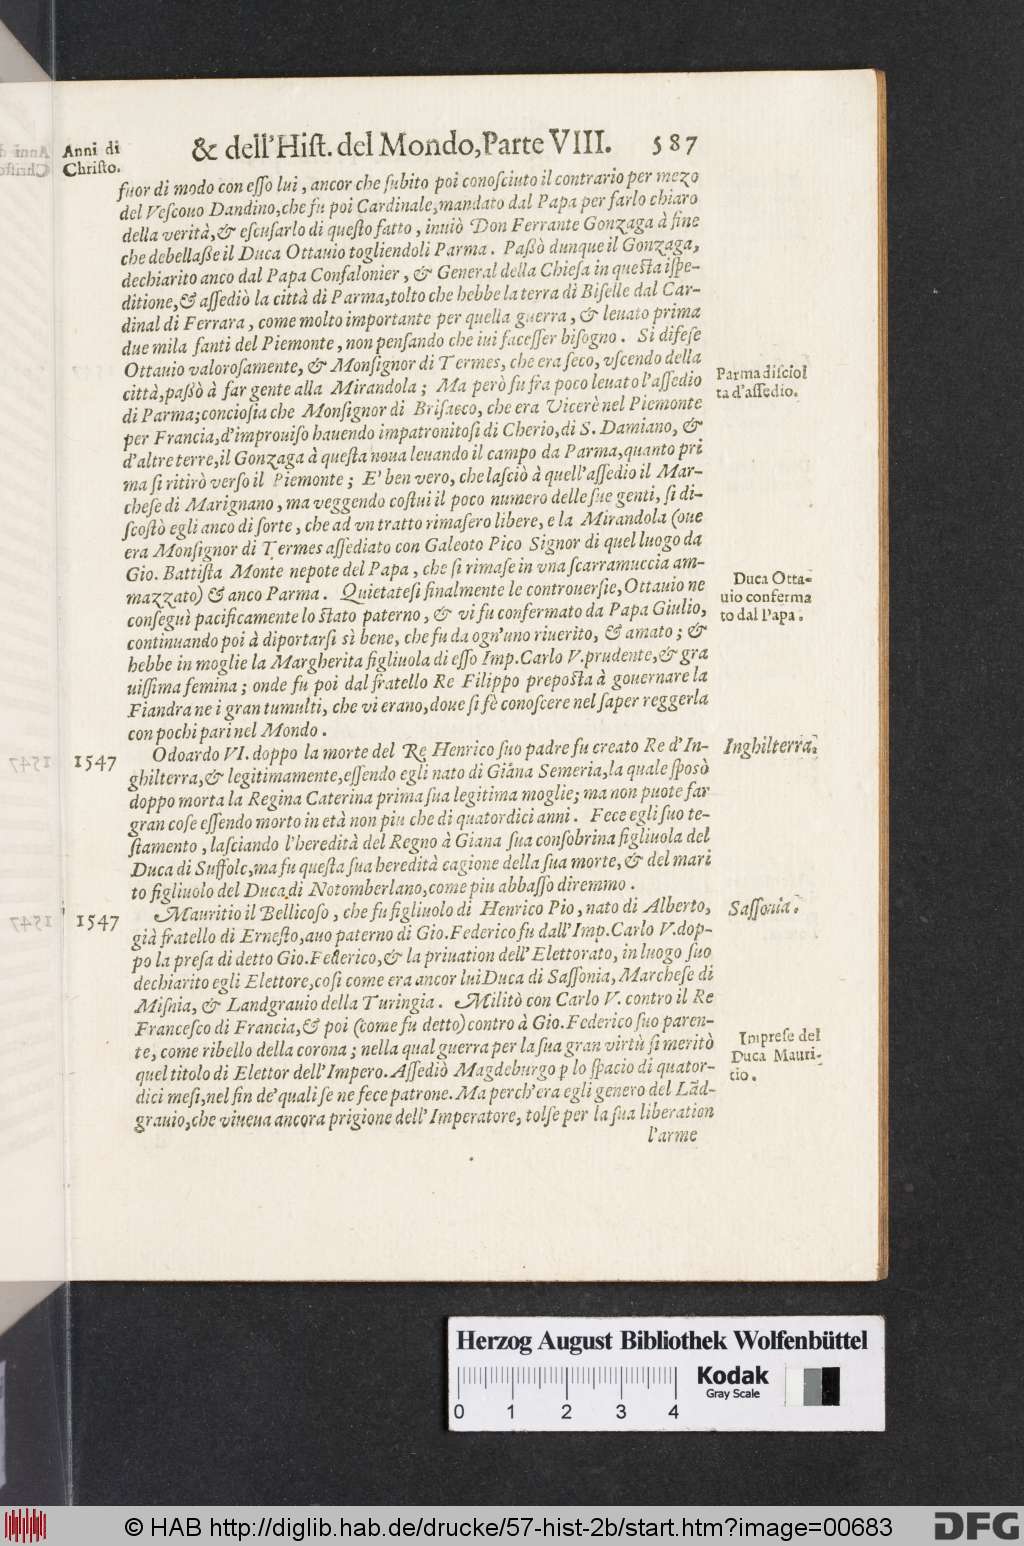 Anni di
Christo.
& dell'Hist. del Mondo, Parte VIII. 587
fuor di modo con eſſo lui, ancor che ſubito poi conoſciuto il contrario per mezo
del Veſcouo Dandino, che fu poi Cardinale, mandato dal Papa per farlo chiaro
della verità, & eſcuſarlo di queſto fatto, inuiò Don Ferrante Gonzaga à fine
che debellaſſe il Duca Ottauio togliendoli Parma. Paſſò dunque il Gonzaga,
dechiarito anco dal Papa Confalonier, & General della Chieſa in queſta iſpe-
ditione, & aſſediò la città di Parma, tolto che hebbe la terra di Biſelle dal Car-
dinal di Ferrara, come molto importante per quella guerra, & leuato prima
due mila fanti del Piemonte, non penſando che iui faceſſer biſogno. Si difeſe
Ottauio valoroſamente, & Monſignor di Termes, che era ſeco, vſcendo della
città, paſſò à far gente alla Mirandola; Ma però fu fra poco leuato l'aſſedio
di Parma; concioſia che Monſignor di Briſaeco, che era Vicerè nel Piemonte
per Francia, d'improuiſo hauendo impatronitoſi di Cherio, di S. Damiano, &
d'altre terre, il Gonzaga à queſta noua leuando il campo da Parma, quanto pri
ma ſi ritirò verſo il Piemonte; E' ben vero, che laſciò à quell'aſſedio il Mar-
cheſe di Marignano, ma veggendo coſtui il poco numero delle ſue genti, ſi di-
ſcoſtò egli anco di ſorte, che ad vn tratto rimaſero libere, e la Mirandola (oue
era Monſignor di Termes aſſediato con Galeoto Pico Signor di quel luogo da
Gio. Battiſta Monte nepote del Papa, che ſi rimaſe in vna ſcarramuccia am-
mazzato) & anco Parma. Quietateſi finalmente le controuerſie, Ottauio ne
conſeguì pacificamente lo ſtato paterno, & vi fu confermato da Papa Giulio,
continuando poi à diportarſi sì bene, che fu da ogn'uno riuerito, & amato; &
hebbe in moglie la Margherita figliuola di eſſo Imp. Carlo V. prudente, & gra
uiſſima femina; onde fu poi dal fratello Re Filippo prepoſta à gouernare la
Fiandra ne i gran tumulti, che vi erano, doue ſi fè conoſcere nel ſaper reggerla
con pochi pari nel Mondo.
Parma diſciol
ta d'aſſedio.
Duca Otta-
uio conferma
to dal Papa.
1547
Odoardo VI. doppo la morte del Re Henrico ſuo padre fu creato Re d'In-
ghilterra, & legitimamente, eſſendo egli nato di Giana Semeria, la quale ſposò
doppo morta la Regina Caterina prima ſua legitima moglie; ma non puote far
gran coſe eſſendo morto in età non piu che di quatordici anni. Fece egli ſuo te-
ſtamento, laſciando l'heredità del Regno à Giana ſua conſobrina figliuola del
Duca di Suffolc, ma fu queſta ſua heredità cagione della ſua morte, & del mari
to figliuolo del Duca di Notomberlano, come piu abbaſſo diremmo.
Inghilterra.
1547
Mauritio il Bellicoſo, che fu figliuolo di Henrico Pio, nato di Alberto,
già fratello di Erneſto, auo paterno di Gio. Federico fu dall'Imp. Carlo V. dop-
po la preſa di detto Gio. Federico, & la priuation dell'Elettorato, in luogo ſuo
dechiarito egli Elettore, coſi come era ancor lui Duca di Saſſonia, Marcheſe di
Miſnia, & Landgrauio della Turingia. Militò con Carlo V. contro il Re
Franceſco di Francia, & poi (come fu detto) contro à Gio. Federico ſuo paren-
te, come ribello della corona; nella qual guerra per la ſua gran virtù ſi meritò
quel titolo di Elettor dell'Impero. Aſſediò Magdeburgo p lo ſpacio di quator-
dici meſi, nel fin de' quali ſe ne fece patrone. Ma perch'era egli genero del Lād-
grauio, che viueua ancora prigione dell'Imperatore, tolſe per la ſua liberation
l'arme
Saſſonia.
Impreſe del
Duca Mauri-
tio.
Herzog August Bibliothek Wolfenbüttel
0 1 2 3 4
Kodak
Gray Scale
© HAB http://diglib.hab.de/drucke/57-hist-2b/start.htm?image=00683
DFG